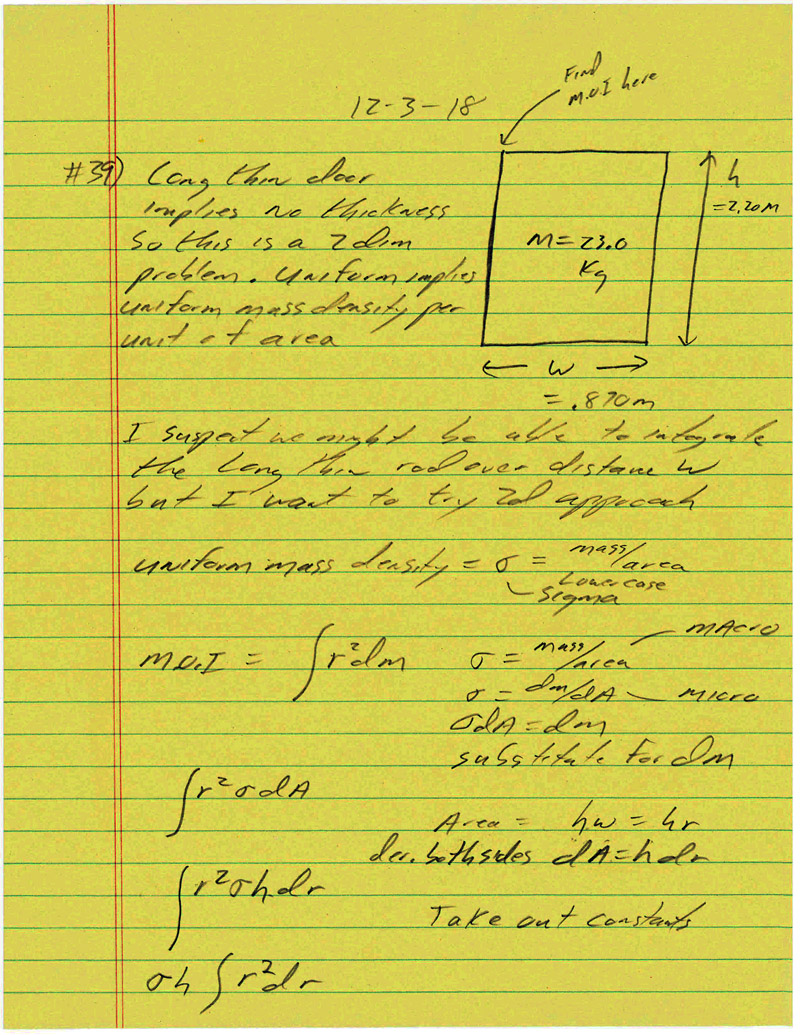 12-3-18
Find
M.O.I here
#39) Long thin door
implies no thickness
so this is a 2dim
problem. Uniform implies
uniform mass density per
unit of area
M=23.0
Kg
h
=2.20M
← w →
= .870m
I suspect we might be able to integrate
the Long thin rod over distance W
but I want to try 2d approach
uniform mass density = σ = mass/area
Lowercase
sigma
M.O.I = ∫r²dm
σ = mass/area — MAcro
σ = dm/dA — Micro
σdA = dm
substitute for dm
∫r²σdA
Area = hw = hr
der. both sides dA = hdr
∫r²σhdr
Take out constants
σh∫r²dr